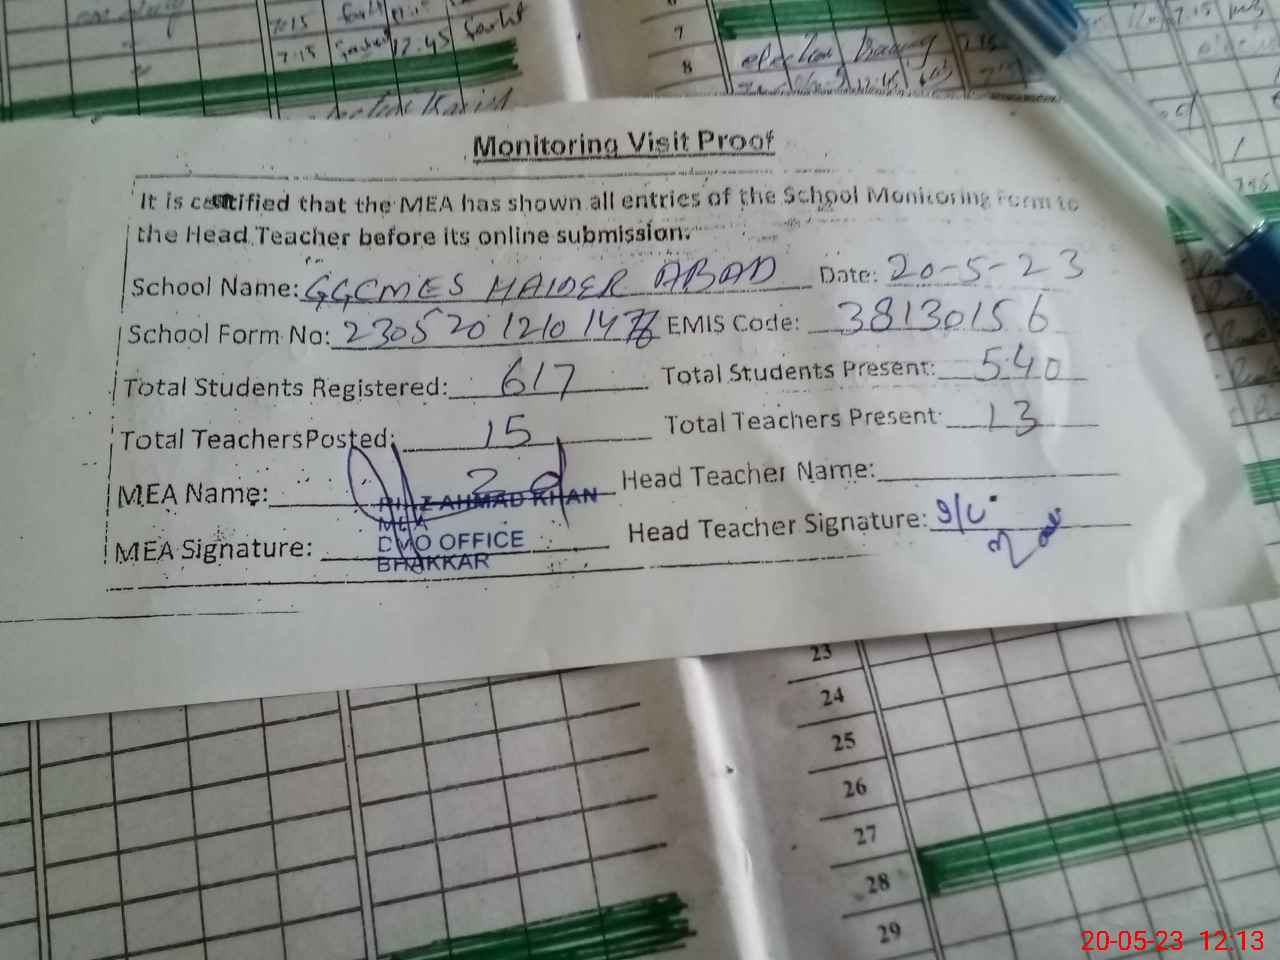 7:15
7:15 12:45
7
8
Monitoring Visit Proof
It is certified that the MEA has shown all entries of the School Monitoring Form to
the Head Teacher before its online submission.
School Name: GGCMES HAIDER ABAD Date: 20-5-23
School Form No: EMIS Code: 38130156
Total Students Registered: 617 Total Students Present: 540
Total Teachers Posted: 15 Total Teachers Present: 13
MEA Name: AHMAD KHAN Head Teacher Name:
MEA
MEA Signature: DMO OFFICE Head Teacher Signature:
BHAKKAR
23
24
25
26
27
28
29
20-05-23 12:13